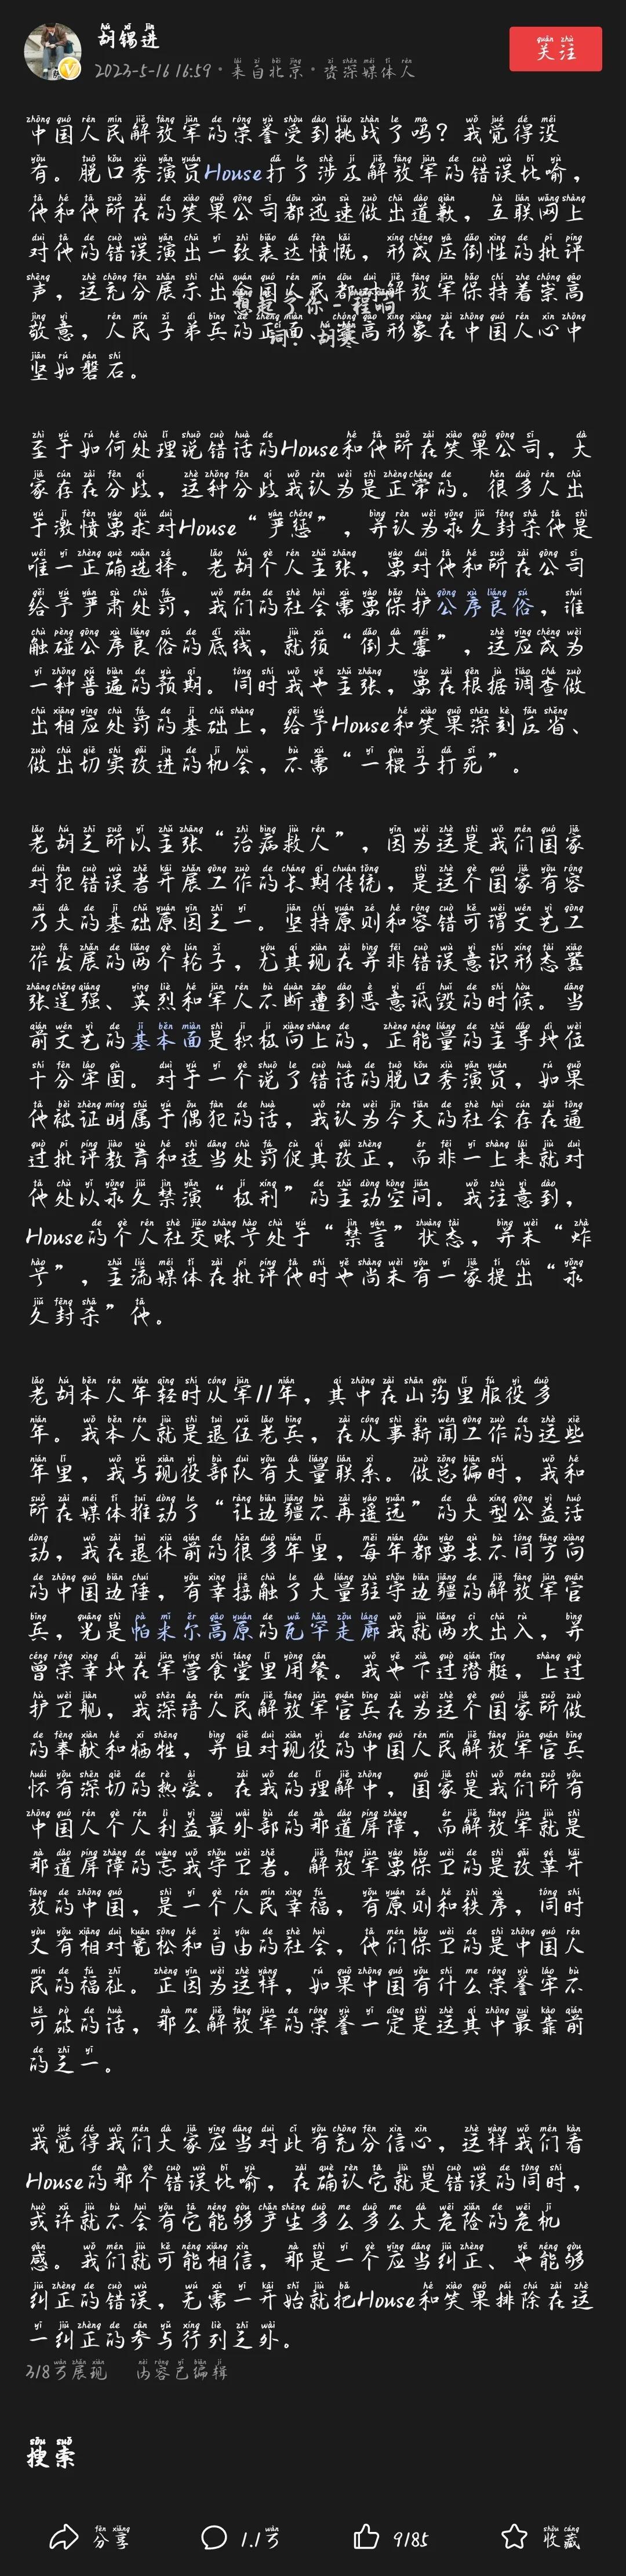 胡锡进
2023-5-16 16:59 · 来自北京 · 资深媒体人
关注
中国人民解放军的荣誉受到挑战了吗？我觉得没
有。脱口秀演员House打了涉及解放军的错误比喻，
他和他所在的笑果公司都迅速做出道歉，互联网上
对他的错误演出一致表达愤慨，形成压倒性的批评
声，这充分展示出全国人民都对解放军保持着崇高
想起了你 - 程响
敬意，人民子弟兵的正面、崇高形象在中国人心中
词：胡寒
坚如磐石。
至于如何处理说错话的House和他所在笑果公司，大
家存在分歧，这种分歧我认为是正常的。很多人出
于激愤要求对House“严惩”，并认为永久封杀他是
唯一正确选择。老胡个人主张，要对他和所在公司
给予严肃处罚，我们的社会需要保护公序良俗，谁
触碰公序良俗的底线，就须“倒大霉”，这应成为
一种普遍的预期。同时我也主张，要在根据调查做
出相应处罚的基础上，给予House和笑果深刻反省、
做出切实改进的机会，不需“一棍子打死”。
老胡之所以主张“治病救人”，因为这是我们国家
对犯错误者开展工作的长期传统，是这个国家有容
乃大的基础原因之一。坚持原则和容错可谓文艺工
作发展的两个轮子，尤其现在并非错误意识形态嚣
张逞强、英烈和军人不断遭到恶意诋毁的时候。当
前文艺的基本面是积极向上的，正能量的主导地位
十分牢固。对于一个说了错话的脱口秀演员，如果
他被证明属于偶犯的话，我认为今天的社会存在通
过批评教育和适当处罚促其改正，而非一上来就对
他处以永久禁演“极刑”的主动空间。我注意到，
House的个人社交账号处于“禁言”状态，并未“炸
号”，主流媒体在批评他时也尚未有一家提出“永
久封杀”他。
老胡本人年轻时从军11年，其中在山沟里服役多
年。我本人就是退伍老兵，在从事新闻工作的这些
年里，我与现役部队有大量联系。做总编时，我和
所在媒体推动了“让边疆不再遥远”的大型公益活
动，我在退休前的很多年里，每年都要去不同方向
的中国边陲，有幸接触了大量驻守边疆的解放军官
兵，光是帕米尔高原的瓦罕走廊我就两次出入，并
曾荣幸地在军营食堂里用餐。我也下过潜艇，上过
护卫舰，我深谙人民解放军官兵在为这个国家所做
的奉献和牺牲，并且对现役的中国人民解放军官兵
怀有深切的热爱。在我的理解中，国家是我们所有
中国人个人利益最外部的那道屏障，而解放军就是
那道屏障的忘我守卫者。解放军要保卫的是改革开
放的中国，是一个人民幸福，有原则和秩序，同时
又有相对宽松和自由的社会，他们保卫的是中国人
民的福祉。正因为这样，如果中国有什么荣誉牢不
可破的话，那么解放军的荣誉一定是这其中最靠前
的之一。
我觉得我们大家应当对此有充分信心，这样我们看
House的那个错误比喻，在确认它就是错误的同时，
或许就不会有它能够产生多么多么大危险的危机
感。我们就可能相信，那是一个应当纠正、也能够
纠正的错误，无需一开始就把House和笑果排除在这
一纠正的参与行列之外。
318万展现 内容已编辑
搜索
分享 1.1万 9185 收藏